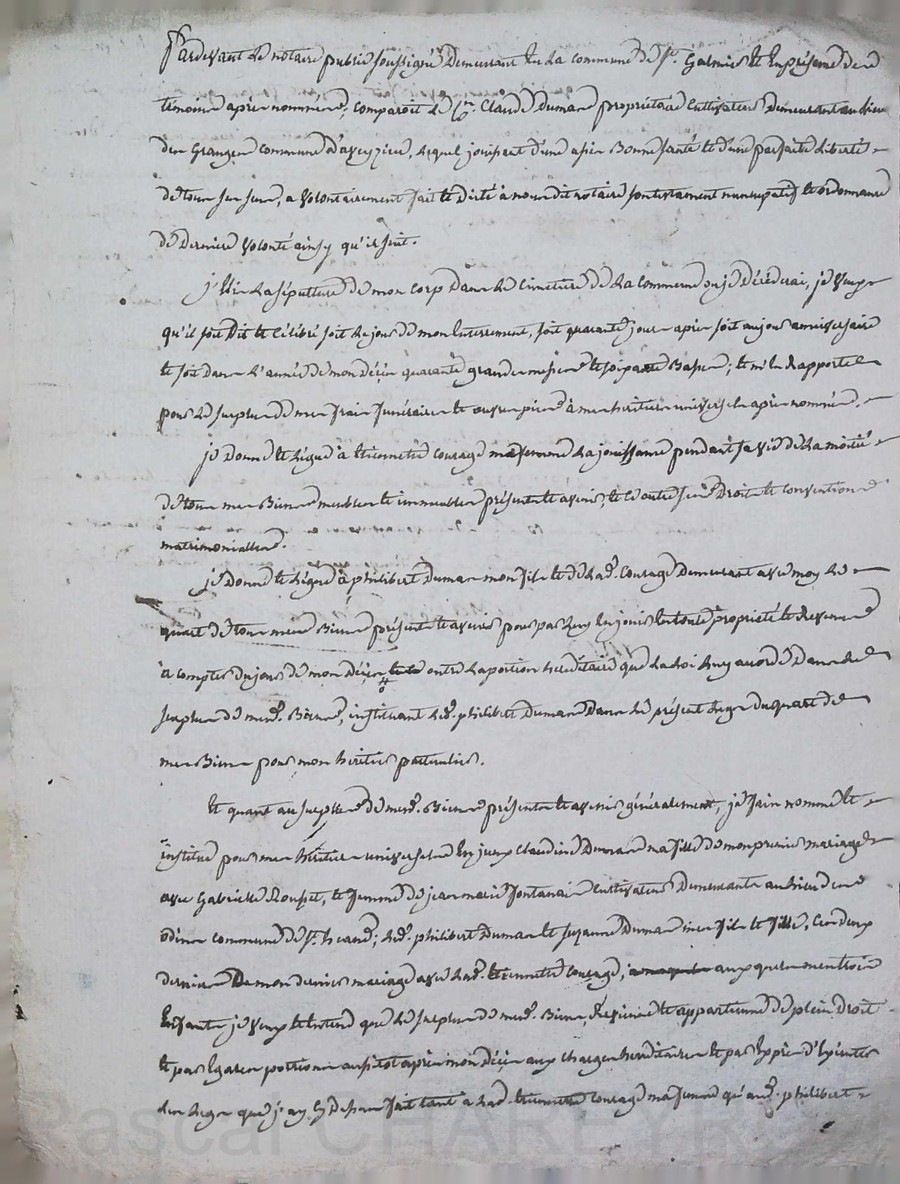 Pardevant le notaire public soussigné Demeurant en la commune de St. Galmier et En présence des
témoins après nommés, comparoît le Cn. Claude Dumas propriétaire cultivateur Demeurant au lieu
des Granges commune d'aveyzieu, lequel jouissant d'une assés Bonne santé et d'une parfaite Liberté
de tous ses sens, a volontairement fait et dicté à nous dit notaire son testament nuncupatif et ordonnance
de Derniere volonté ainsy qu'il suit.
j'Elis la sépulture de mon corp Dans le cimetière de la commune ou je décéderai, je veux
qu'il soit Dit et célébré soit le jour de mon Enterrement, soit quarante jours après soit au jour anniversaire
et soit dans l'année de mon décès quarante grandes messes et soixante Basses; et m'En rapporte
pour le surplus de mes frais funéraires et œuvres pies à mes heritiers universels après nommés.
je Donne et Lègue à courage ma femme la jouissance pendant sa vie de la moitié
de tous mes Biens meubles et immeubles présents et avenir, et ce outre ses Droits et conventions
matrimonialles.
je Donne et Lègue à philibert Dumas mon fils et de lad. Courage Demeurant avec moy le
quart de tous mes Biens présents et avenir pour par luy En jouir En toute propriété et Revenus
à compter du jour de mon décès outre la portion héréditaire que la Loi luy accorde Dans le
surplus de mesd. Biens, instituant led. philibert Dumas Dans le présent Legs du quart de
mes Biens pour mon heritier particulier.
Et quant au surplus de mesd. Biens présents et avenir généralement, j'ai fain nommé et
institué pour mes héritiers universels Claudine Dumas ma fille de mon premier mariage
avec Gabrielle Rousset, et femme de jean marie fontanais Cultivateur Demeurante au lieu
commune de St. heand; led. philibert Dumas et suzanne Dumas mes fils et fille, Ces deux
derniers De mon dernier mariage avec lad. courage, auxquels mes trois
Enfants je veux et Entend que le surplus de mesd. Biens, Revienne et appartienne de plein Droit
et par Egales portions aussitot après mon décès aux charges héréditaires et par Exprès d'Exécuter
les legs que j'ay cy Dessus fait tant à lad. courage ma femme qu'aud. philibert
Pascal CHAREYRON